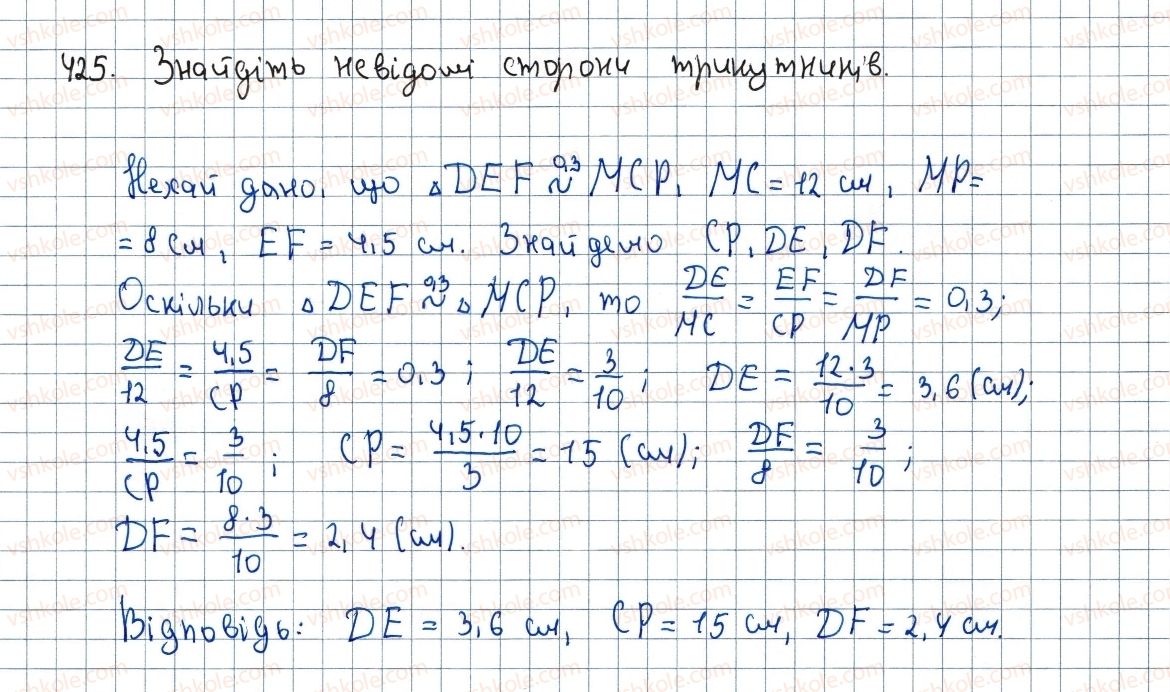 425. Знайдіть невідомі сторони трикутників.
Нехай дано, що △DEF ~^0,3 MCP, MC = 12 см, MP =
= 8 см, EF = 4,5 см. Знайдемо CP, DE, DF.
Оскільки △DEF ~^0,3 △MCP, то DE/MC = EF/CP = DF/MP = 0,3;
DE/12 = 4,5/CP = DF/8 = 0,3; DE/12 = 3/10; DE = 12·3/10 = 3,6 (см);
4,5/CP = 3/10; CP = 4,5·10/3 = 15 (см); DF/8 = 3/10;
DF = 8·3/10 = 2,4 (см).
Відповідь: DE = 3,6 см, CP = 15 см, DF = 2,4 см.
vshkole.com